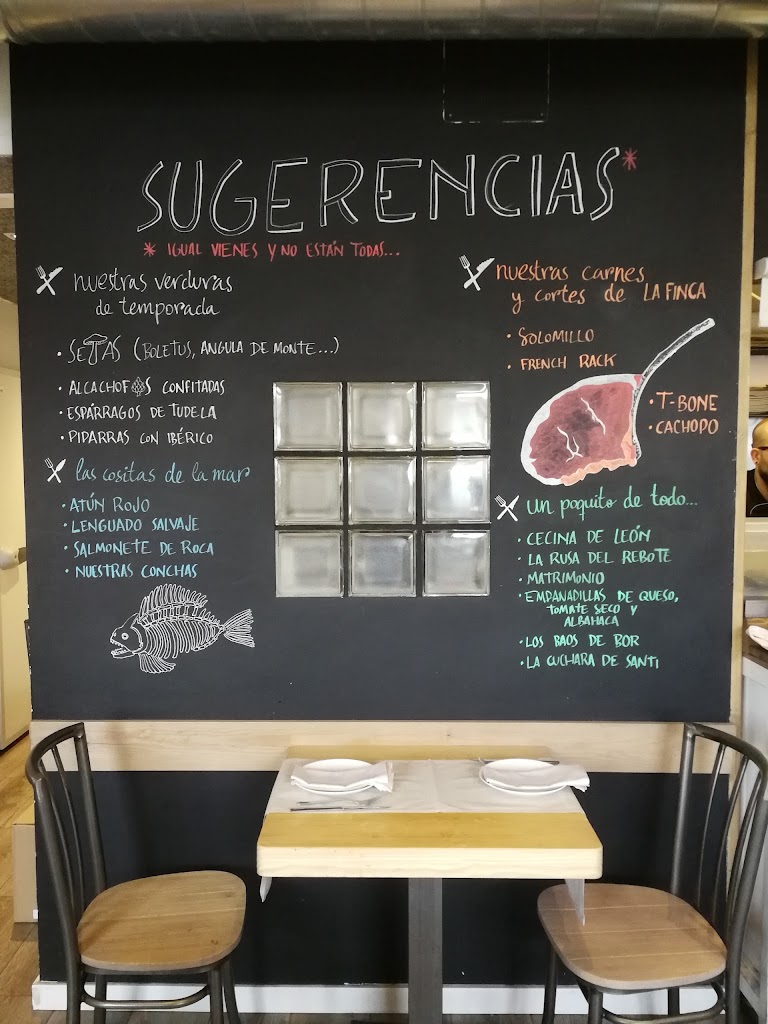 SUGERENCIAS*
* IGUAL VIENES Y NO ESTÁN TODAS...
nuestras verduras
de temporada
· SETAS (BOLETUS, ANGULA DE MONTE...)
· ALCACHOFAS CONFITADAS
· ESPÁRRAGOS DE TUDELA
· PIPARRAS CON IBÉRICO
las cositas de la mar
· ATÚN ROJO
· LENGUADO SALVAJE
· SALMONETE DE ROCA
· NUESTRAS CONCHAS
nuestras carnes
y cortes de LA FINCA
· SOLOMILLO
· FRENCH RACK
· T-BONE
· CACHOPO
un poquito de todo...
· CECINA DE LEÓN
· LA RUSA DEL REBOTE
· MATRIMONIO
· EMPANADILLAS DE QUESO,
TOMATE SECO Y
ALBAHACA
· LOS BAOS DE BOR
· LA CUCHARA DE SANTI